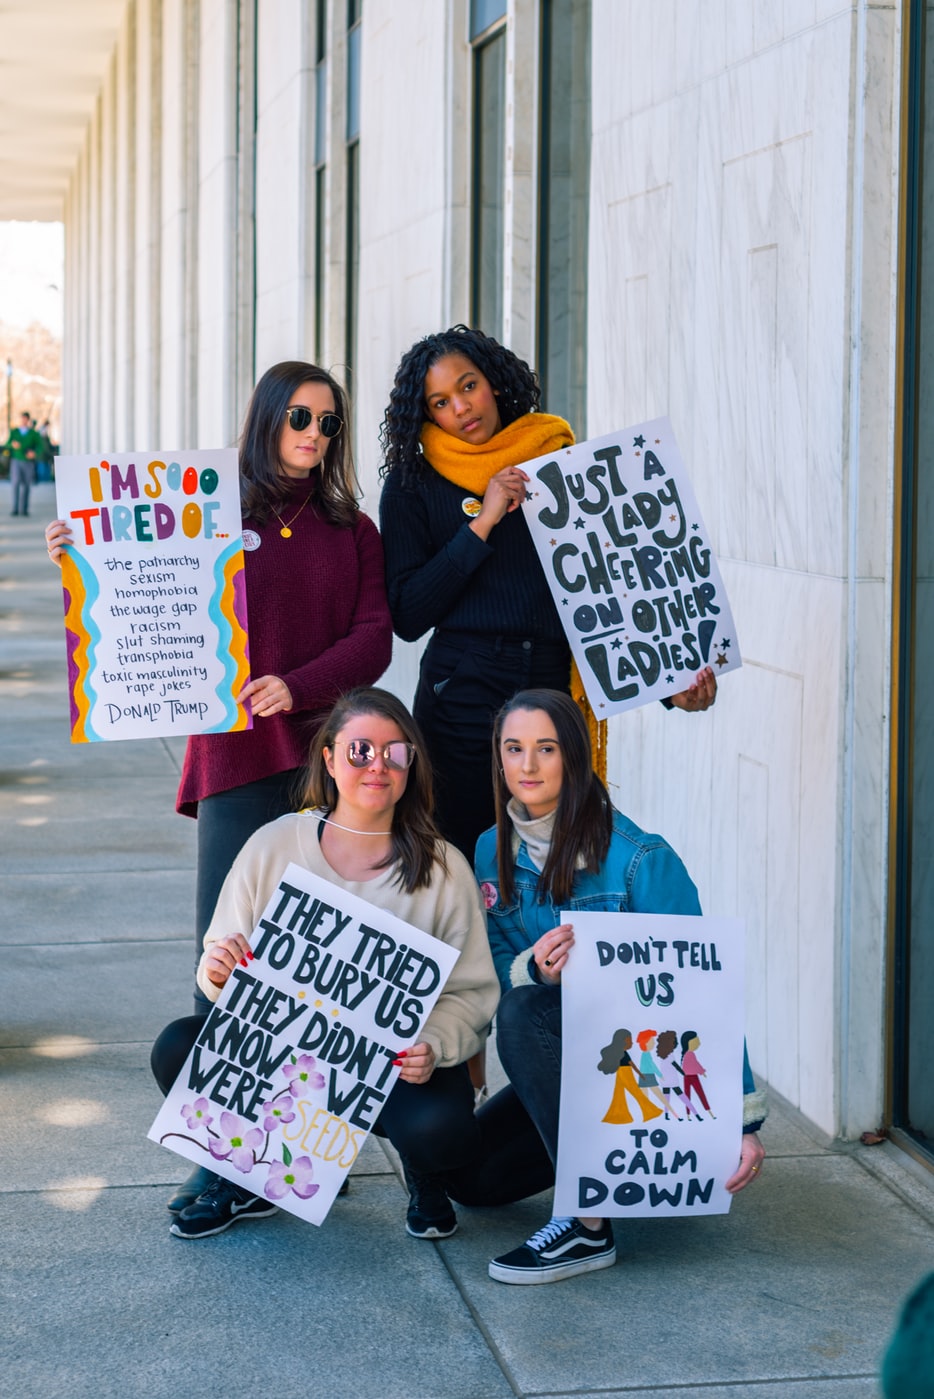 I'M SOOO
TIRED OF...
the patriarchy
sexism
homophobia
the wage gap
racism
slut shaming
transphobia
toxic masculinity
rape jokes
DONALD TRUMP
JUST A
LADY
CHEERING
ON OTHER
LADIES!
THEY TRIED
TO BURY US
THEY DIDN'T
KNOW WE
WERE SEEDS
DON'T TELL
US
TO
CALM
DOWN